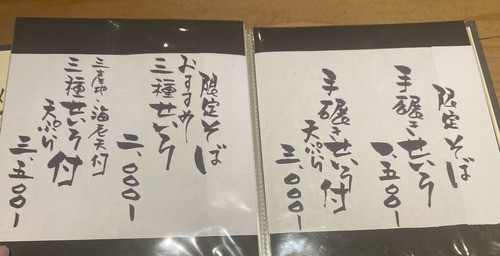 限定そば
手碾きせいろ
一、五〇〇一
手碾きせいろ付
天ぷら
三、〇〇〇一
限定そば
おすすめ
三種せいろ
二、〇〇〇一
海老天付
三種せいろ付
天ぷら
三、五〇〇一